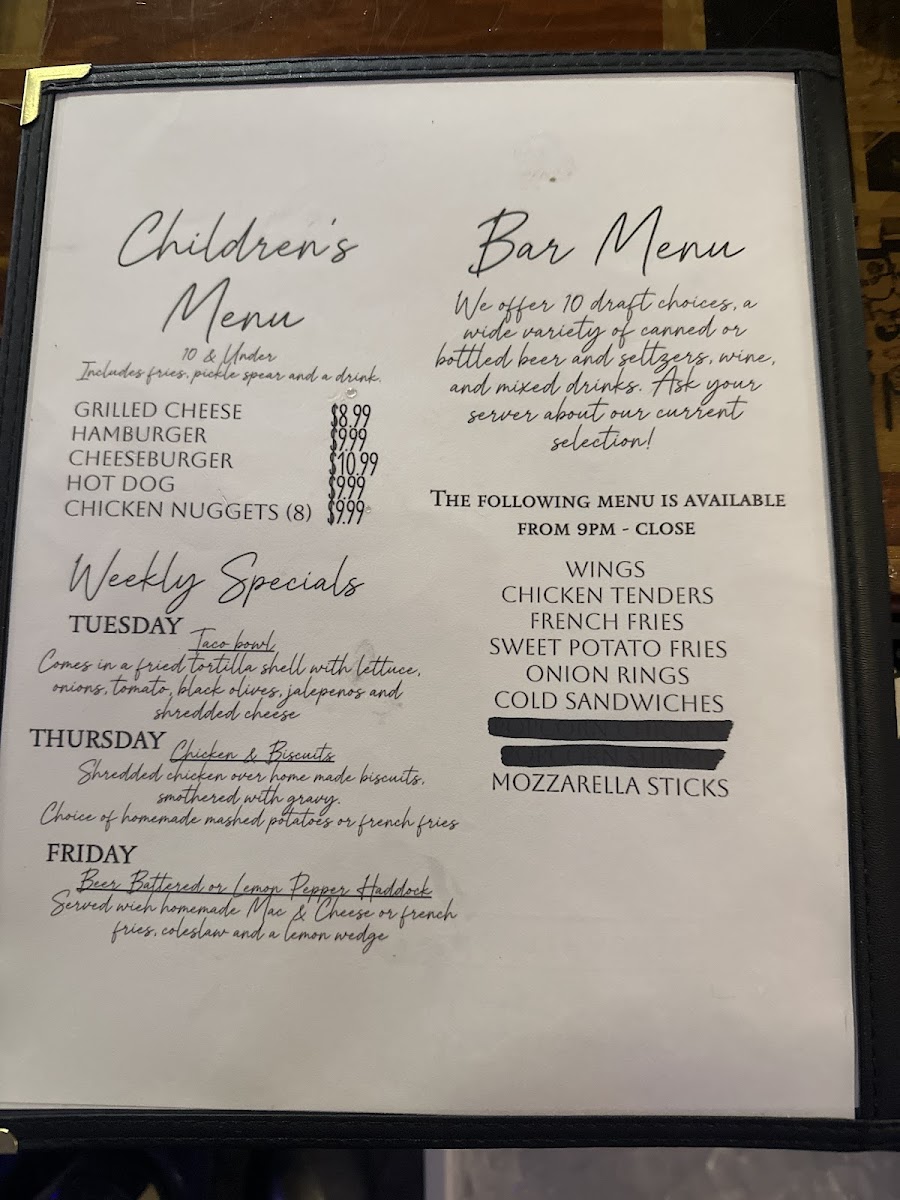 Children's
Menu
10 & Under
Includes fries, pickle spear and a drink.
GRILLED CHEESE $8.99
HAMBURGER $9.99
CHEESEBURGER $10.99
HOT DOG $9.99
CHICKEN NUGGETS (8) $9.99
Weekly Specials
TUESDAY
Taco bowl
Comes in a fried tortilla shell with lettuce,
onions, tomato, black olives, jalepenos and
shredded cheese
THURSDAY
Chicken & Biscuits
Shredded chicken over home made biscuits,
smothered with gravy.
Choice of homemade mashed potatoes or french fries
FRIDAY
Beer Battered or Lemon Pepper Haddock
Served wieh homemade Mac & Cheese or french
fries, coleslaw and a lemon wedge
Bar Menu
We offer 10 draft choices, a
wide variety of canned or
bottled beer and seltzers, wine,
and mixed drinks. Ask your
server about our current
selection!
THE FOLLOWING MENU IS AVAILABLE
FROM 9PM - CLOSE
WINGS
CHICKEN TENDERS
FRENCH FRIES
SWEET POTATO FRIES
ONION RINGS
COLD SANDWICHES
MOZZARELLA STICKS